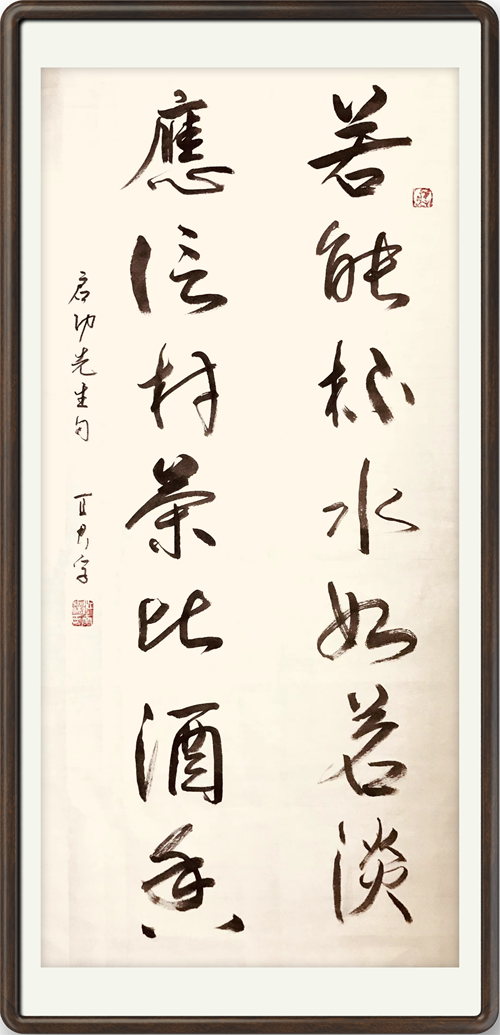 若能杯水如茗淡
應信村茶比酒香
启功先生句